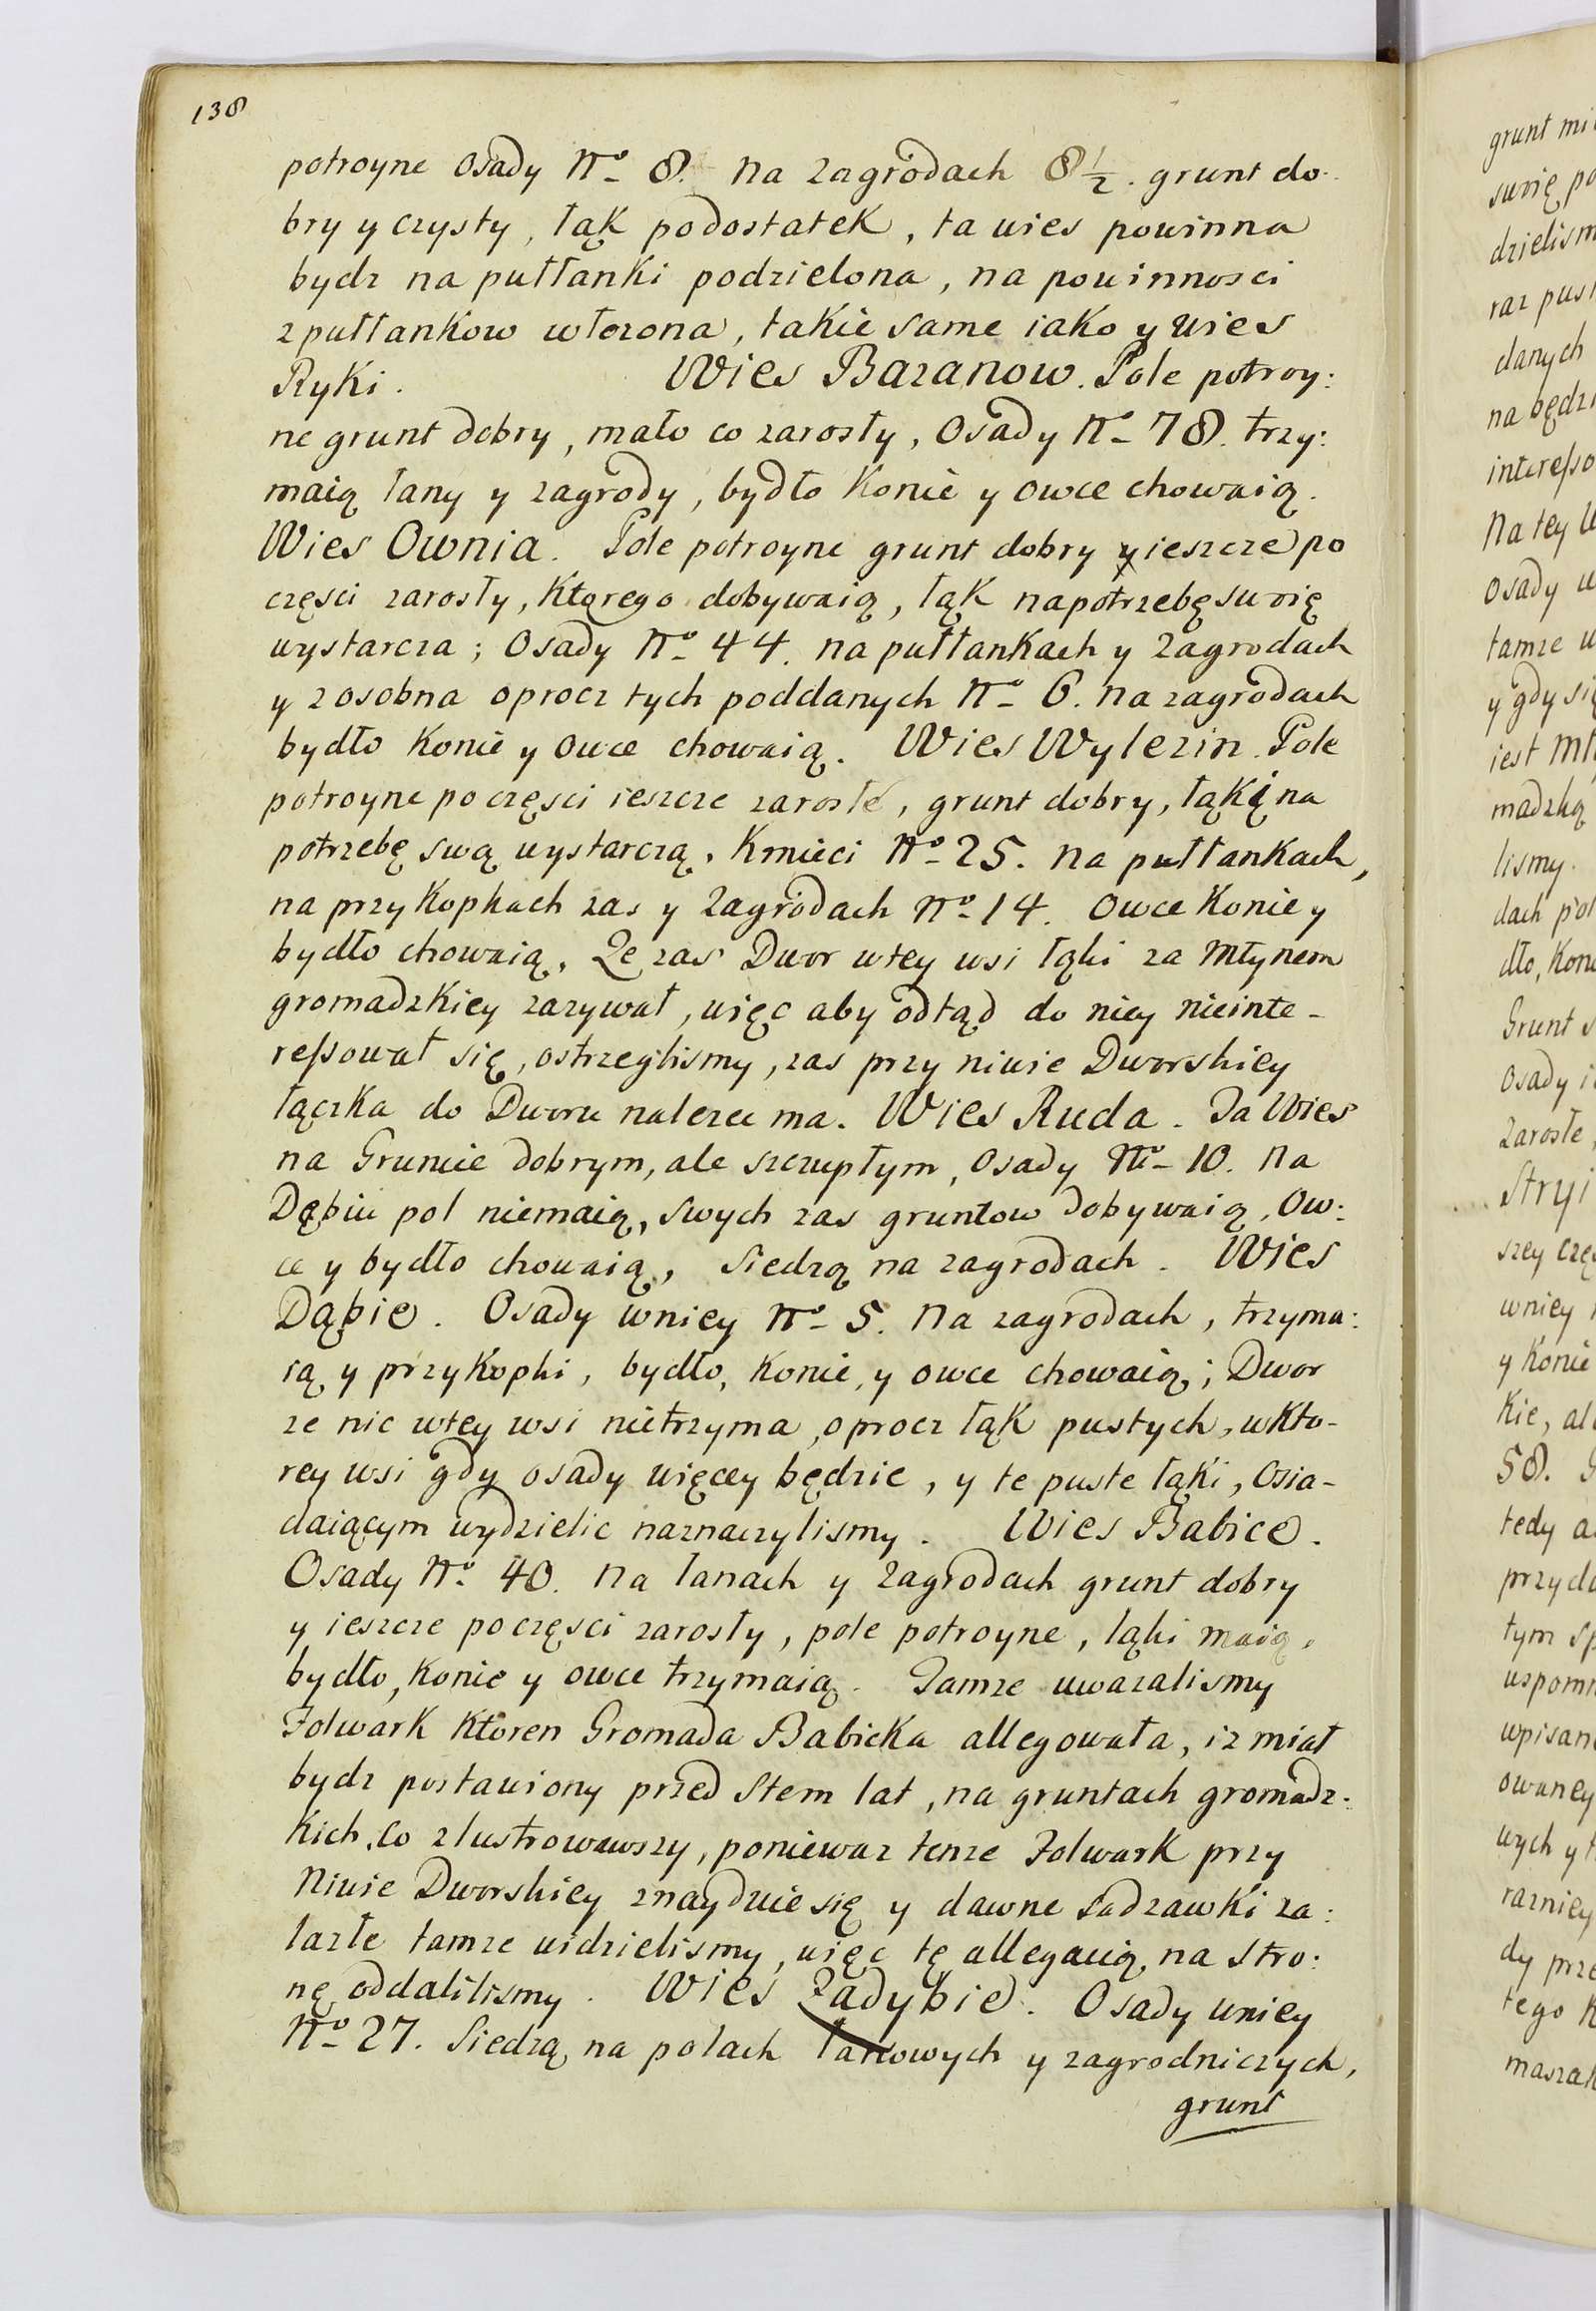 138
potroyne Osady No 8. na zagrodach 8 1/2. grunt do-
bry y czysty, łąk podostatek, ta wies powinna
bydz na pułłanki podzielona, na powinnosci
z pułłankow włozona, takie same iako y Wies
Ryki. Wies Bazanow. Pole potroy:
ne grunt dobry, mało co zarosły, Osady No 78. trzy:
maią łany y zagrody, bydło Konie y owce chowaią.
Wies Ownia. Pole potroyne grunt dobry y ieszcze po
częsci zarosły, Ktorego dobywaią, łąk na potrzebę swoię
wystarcza; Osady No 44. na pułłankach y zagrodach
y z osobna oprocz tych poddanych No 6. na zagrodach
bydło Konie y owce chowaią. Wies Wylezin. Pole
potroyne po częsci ieszcze zarosłe, grunt dobry, łąki na
potrzebę swą wystarczą. Kmieci No 25. na pułłankach,
na przykopkach zas y zagrodach No 14. Owce Konie y
bydło chowaią. Ze zas Dwor w tey wsi łąki za Młynem
gromadzkiey zazywał, więc aby odtąd do niey nieinte-
ressował się, ostrzeglismy, zas przy niwie Dworskiey
łączka do Dworu nalezec ma. Wies Ruda. Ta Wies
na Gruncie dobrym, ale szczupłym, Osady No 10. na
Dębiu pol niemaią, swych zas gruntow dobywaią, Ow:
ce y bydło chowaią, siedzą na zagrodach. Wies
Dąbie. Osady w niey No 5. na zagrodach, trzyma:
ią y przykopki, bydło, konie, y owce chowaią; Dwor
ze nic w tey wsi nietrzyma, oprocz łąk pustych, w kto-
rey wsi gdy osady więcey będzie, y te puste łąki, Osia-
daiącym wydzielic naznaczylismy. Wies Babice.
Osady No 40. na łanach y zagrodach grunt dobry
y ieszcze po częsci zarosły, pole potroyne, łąki maią,
bydło, Konie y owce trzymaią. Tamze uwazalismy
Folwark Ktoren Gromada Babicka allegowała, iz miał
bydz postawiony przed Stem lat, na gruntach gromadz-
Kich, Co zlustrowawszy, poniewaz tenze Folwark przy
Niwie Dworskiey znayduie się y dawne Sadzawki za:
lazłe tamze widzielismy, więc tę allegacią na stro:
nę oddalilismy. Wies Zadybie. Osady w niey
No 27. Siedzą na polach łanowych y zagrodniczych,
grunt
grunt
dzielism
danych
Na tey
Osady
tamze
y gdy się
iest
madzką
lismy.
Grunt
Osady
Zarosłe
Stryi
w niey
y Konie
Kie,
58.
tedy
tym
owaney
wych y
tego